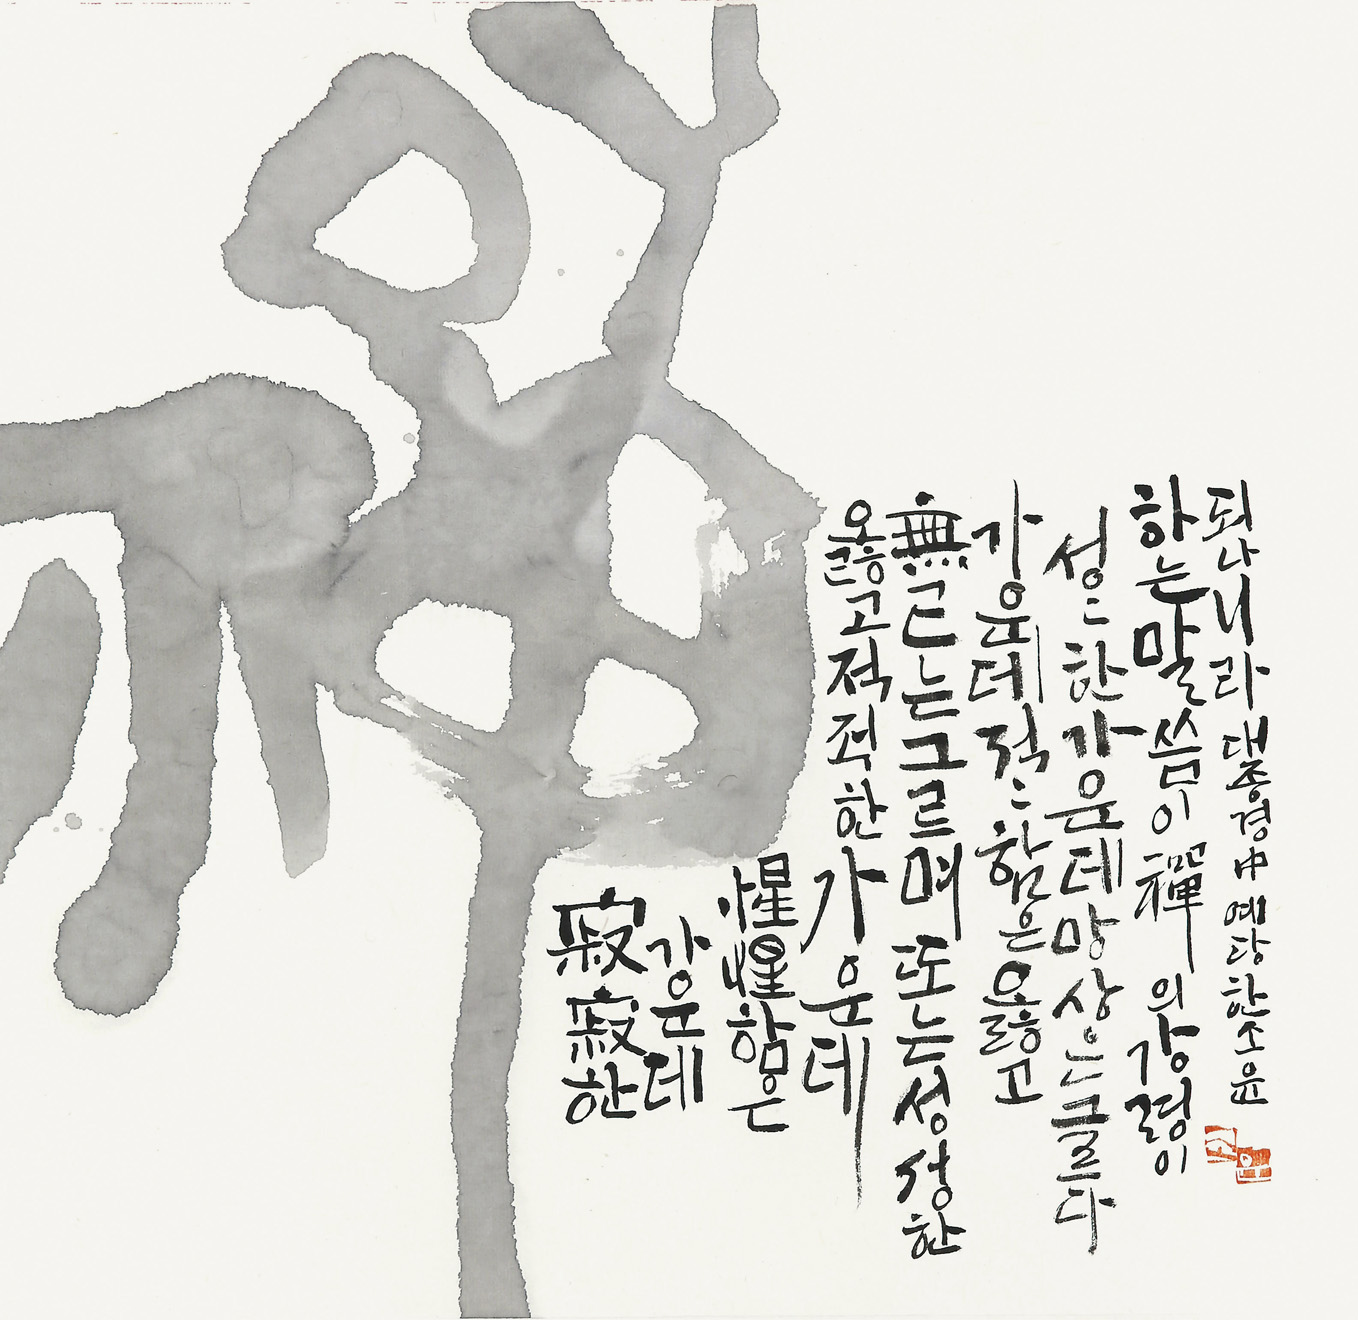 寂寂한
가운데
惺惺함은
옳고적적한가운데
無己는그르며또는성성한
가운데적〻함은옳고
성〻한가운데망상은그르다
하는말씀이禪의강령이
되나니라 대종경中 예당한소윤
소윤